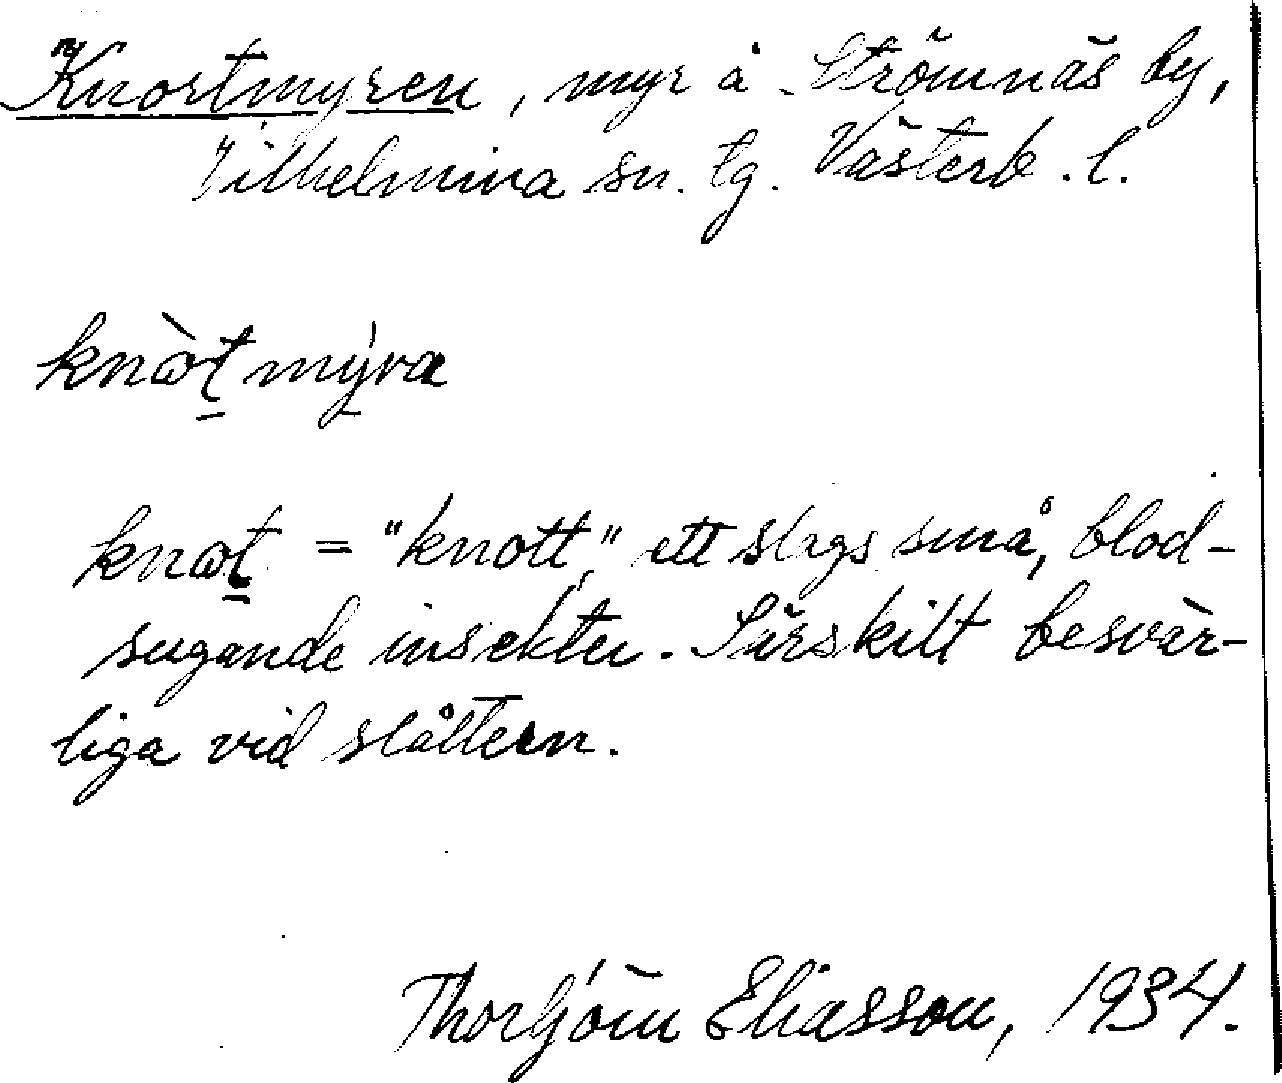 Knortmyren, myr å Strömnäs by,
Vilhelmina sn. Lg. Västerb. l.
knòt mýra
knot = "knott," ett slags små, blod-
sugande insekter. Särskilt besvär-
liga vid slåttern.
Thorbjörn Eliasson, 1934.